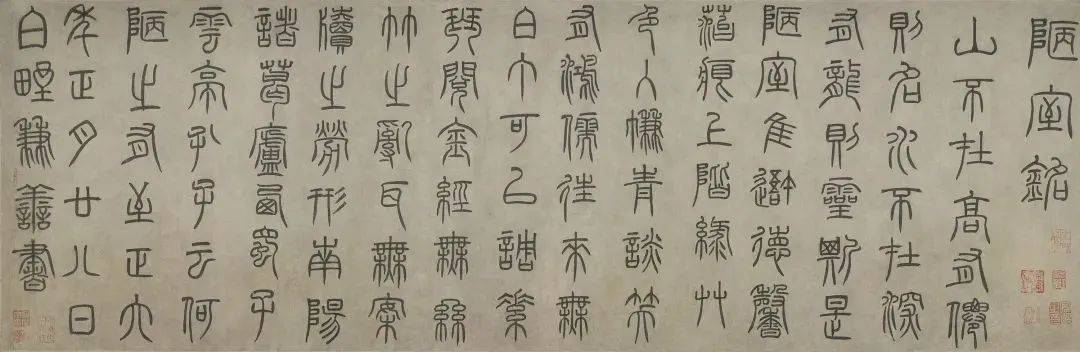 陋室銘
山不在高有僊
則名水不在深
有龍則靈斯是
陋室隹吾德馨
苔痕上階綠艸
色入簾青談笑
有鴻儒往來無
白丁可以調素
琴閱金經無絲
竹之亂耳無案
牘之勞形南陽
諸葛廬西蜀子
雲亭孔子云何
陋之有至正六
年正月廿八日
白野兼善書